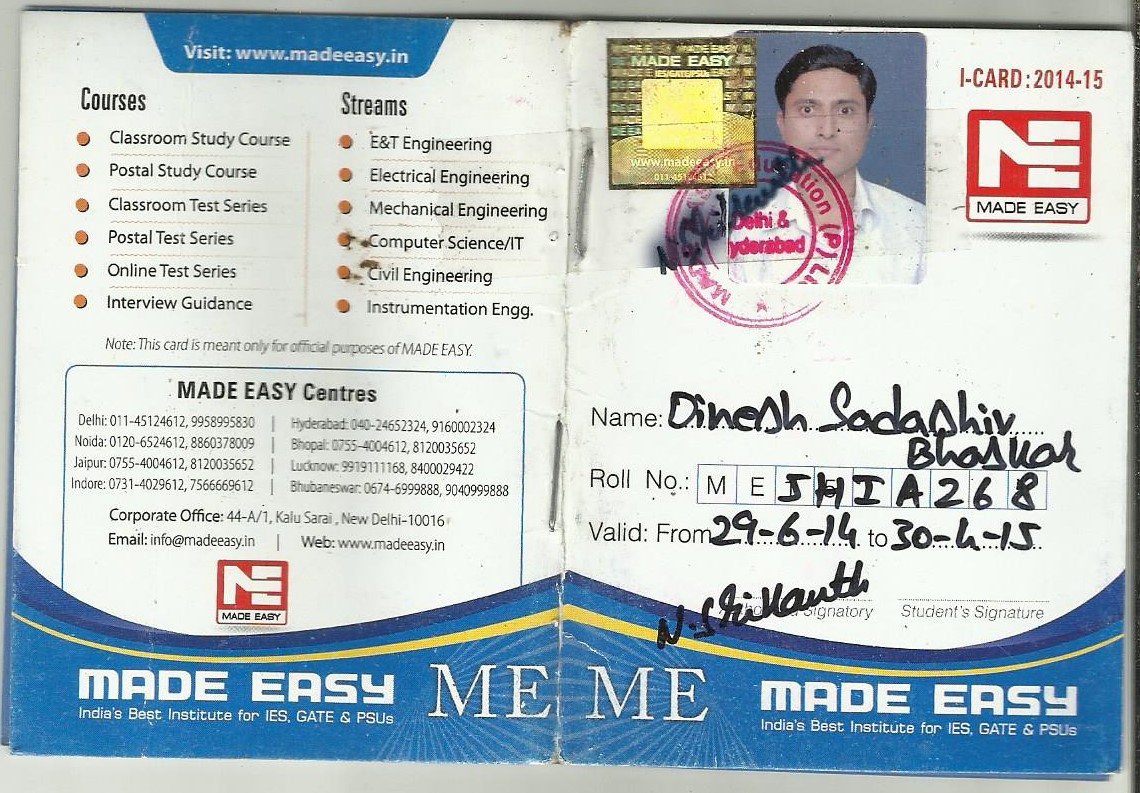 Visit: www.madeeasy.in
Courses
Classroom Study Course
Postal Study Course
Classroom Test Series
Postal Test Series
Online Test Series
Interview Guidance
Streams
E&T Engineering
Electrical Engineering
Mechanical Engineering
Computer Science/IT
Civil Engineering
Instrumentation Engg.
Note: This card is meant only for official purposes of MADE EASY.
MADE EASY Centres
Delhi: 011-45124612, 9958995830 | Hyderabad: 040-24652324, 9160002324
Noida: 0120-6524612, 8860378009 | Bhopal: 0755-4004612, 8120035652
Jaipur: 0755-4004612, 8120035652 | Lucknow: 9919111168, 8400029422
Indore: 0731-4029612, 7566669612 | Bhubaneswar: 0674-6999888, 9040999888
Corporate Office: 44-A/1, Kalu Sarai, New Delhi-10016
Email: info@madeeasy.in | Web: www.madeeasy.in
MADE EASY
MADE EASY
India's Best Institute for IES, GATE & PSUs
ME
MADE EASY
IES/GATE/PSUs
www.madeeasy.in
Delhi &
yderabad
I-CARD: 2014-15
MADE EASY
Name: Dinesh Sadashiv
Bhaskar
Roll No.: M E 5 H I A 2 6 8
Valid: From 29-6-14 to 30-4-15
N. Srikanth
Signatory
Student's Signature
ME
MADE EASY
India's Best Institute for IES, GATE & PSUs